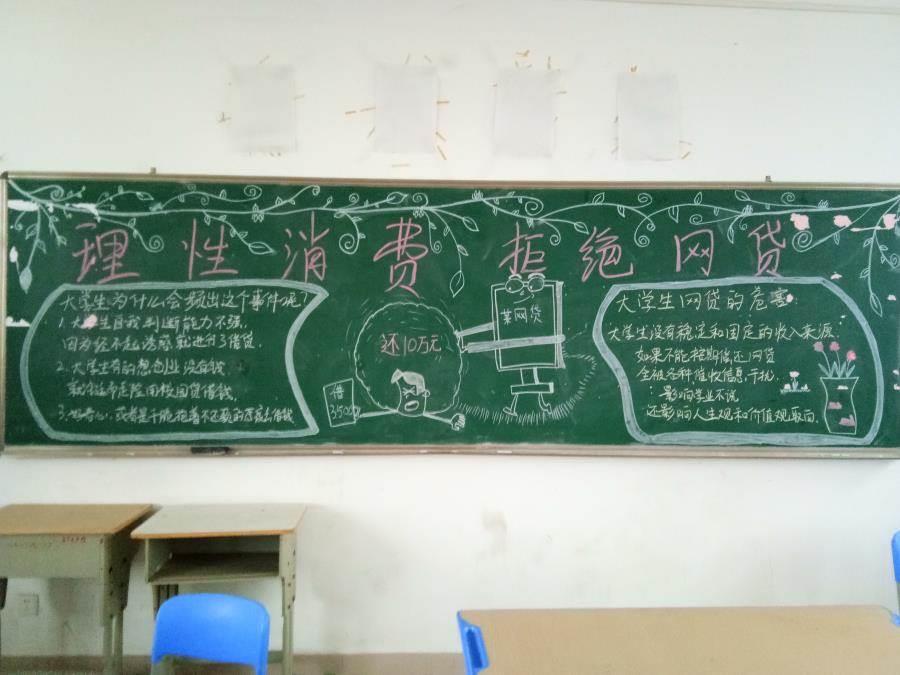 理性消费 拒绝网贷
大学生为什么会频出这个事件呢?
1.大学生自我判断能力不强,
因为经不起诱惑就进行了借贷.
2.大学生有的想创业没有钱
就向校园贷借钱.
3.好奇心,或者是
借钱
还10万元
借
3500
某网贷
大学生网贷的危害:
大学生没有稳定和固定的收入来源
如果不能按期偿还网贷
会被各种催收信息干扰,
影响学业不说
还影响人生观和价值观取向.